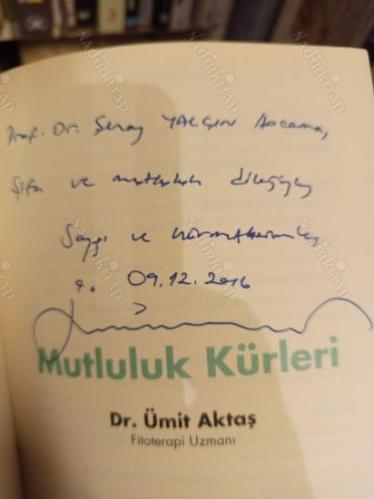 Prof. Dr. Şenay YALÇIN Hocama,
Şifa ve mutluluk dileğiyle
Saygı ve hürmetlerimle
09.12.2016
Mutluluk Kürleri
Dr. Ümit Aktaş
Fitoterapi Uzmanı
NADİRKİTAP